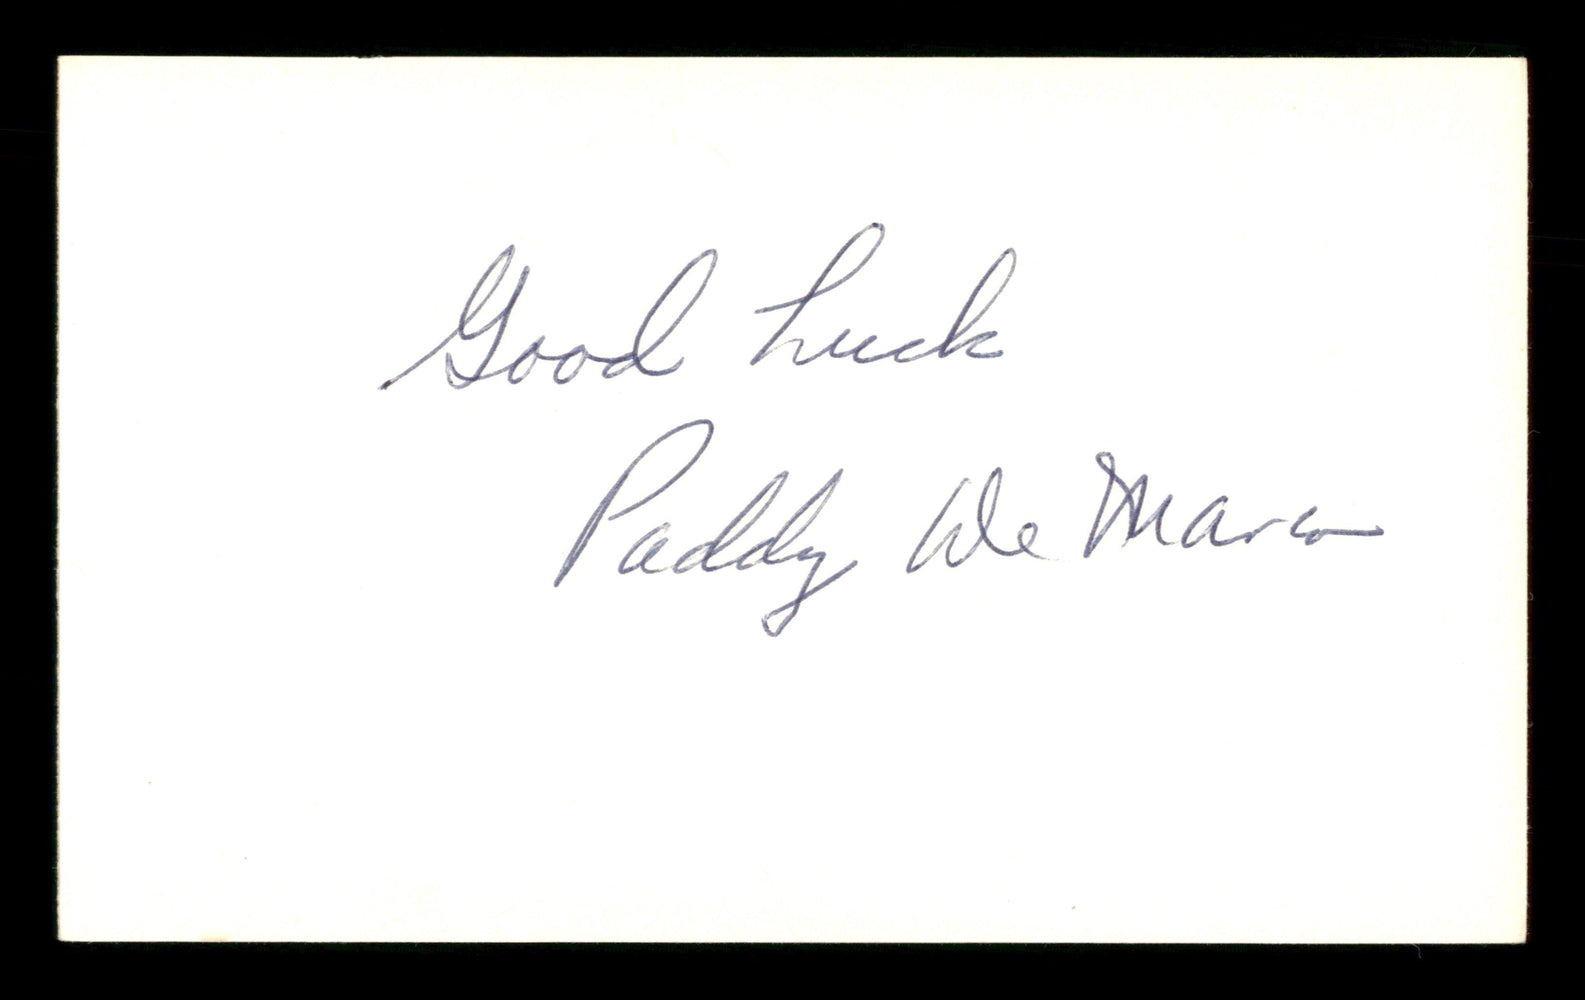 Good Luck
Paddy De Marco